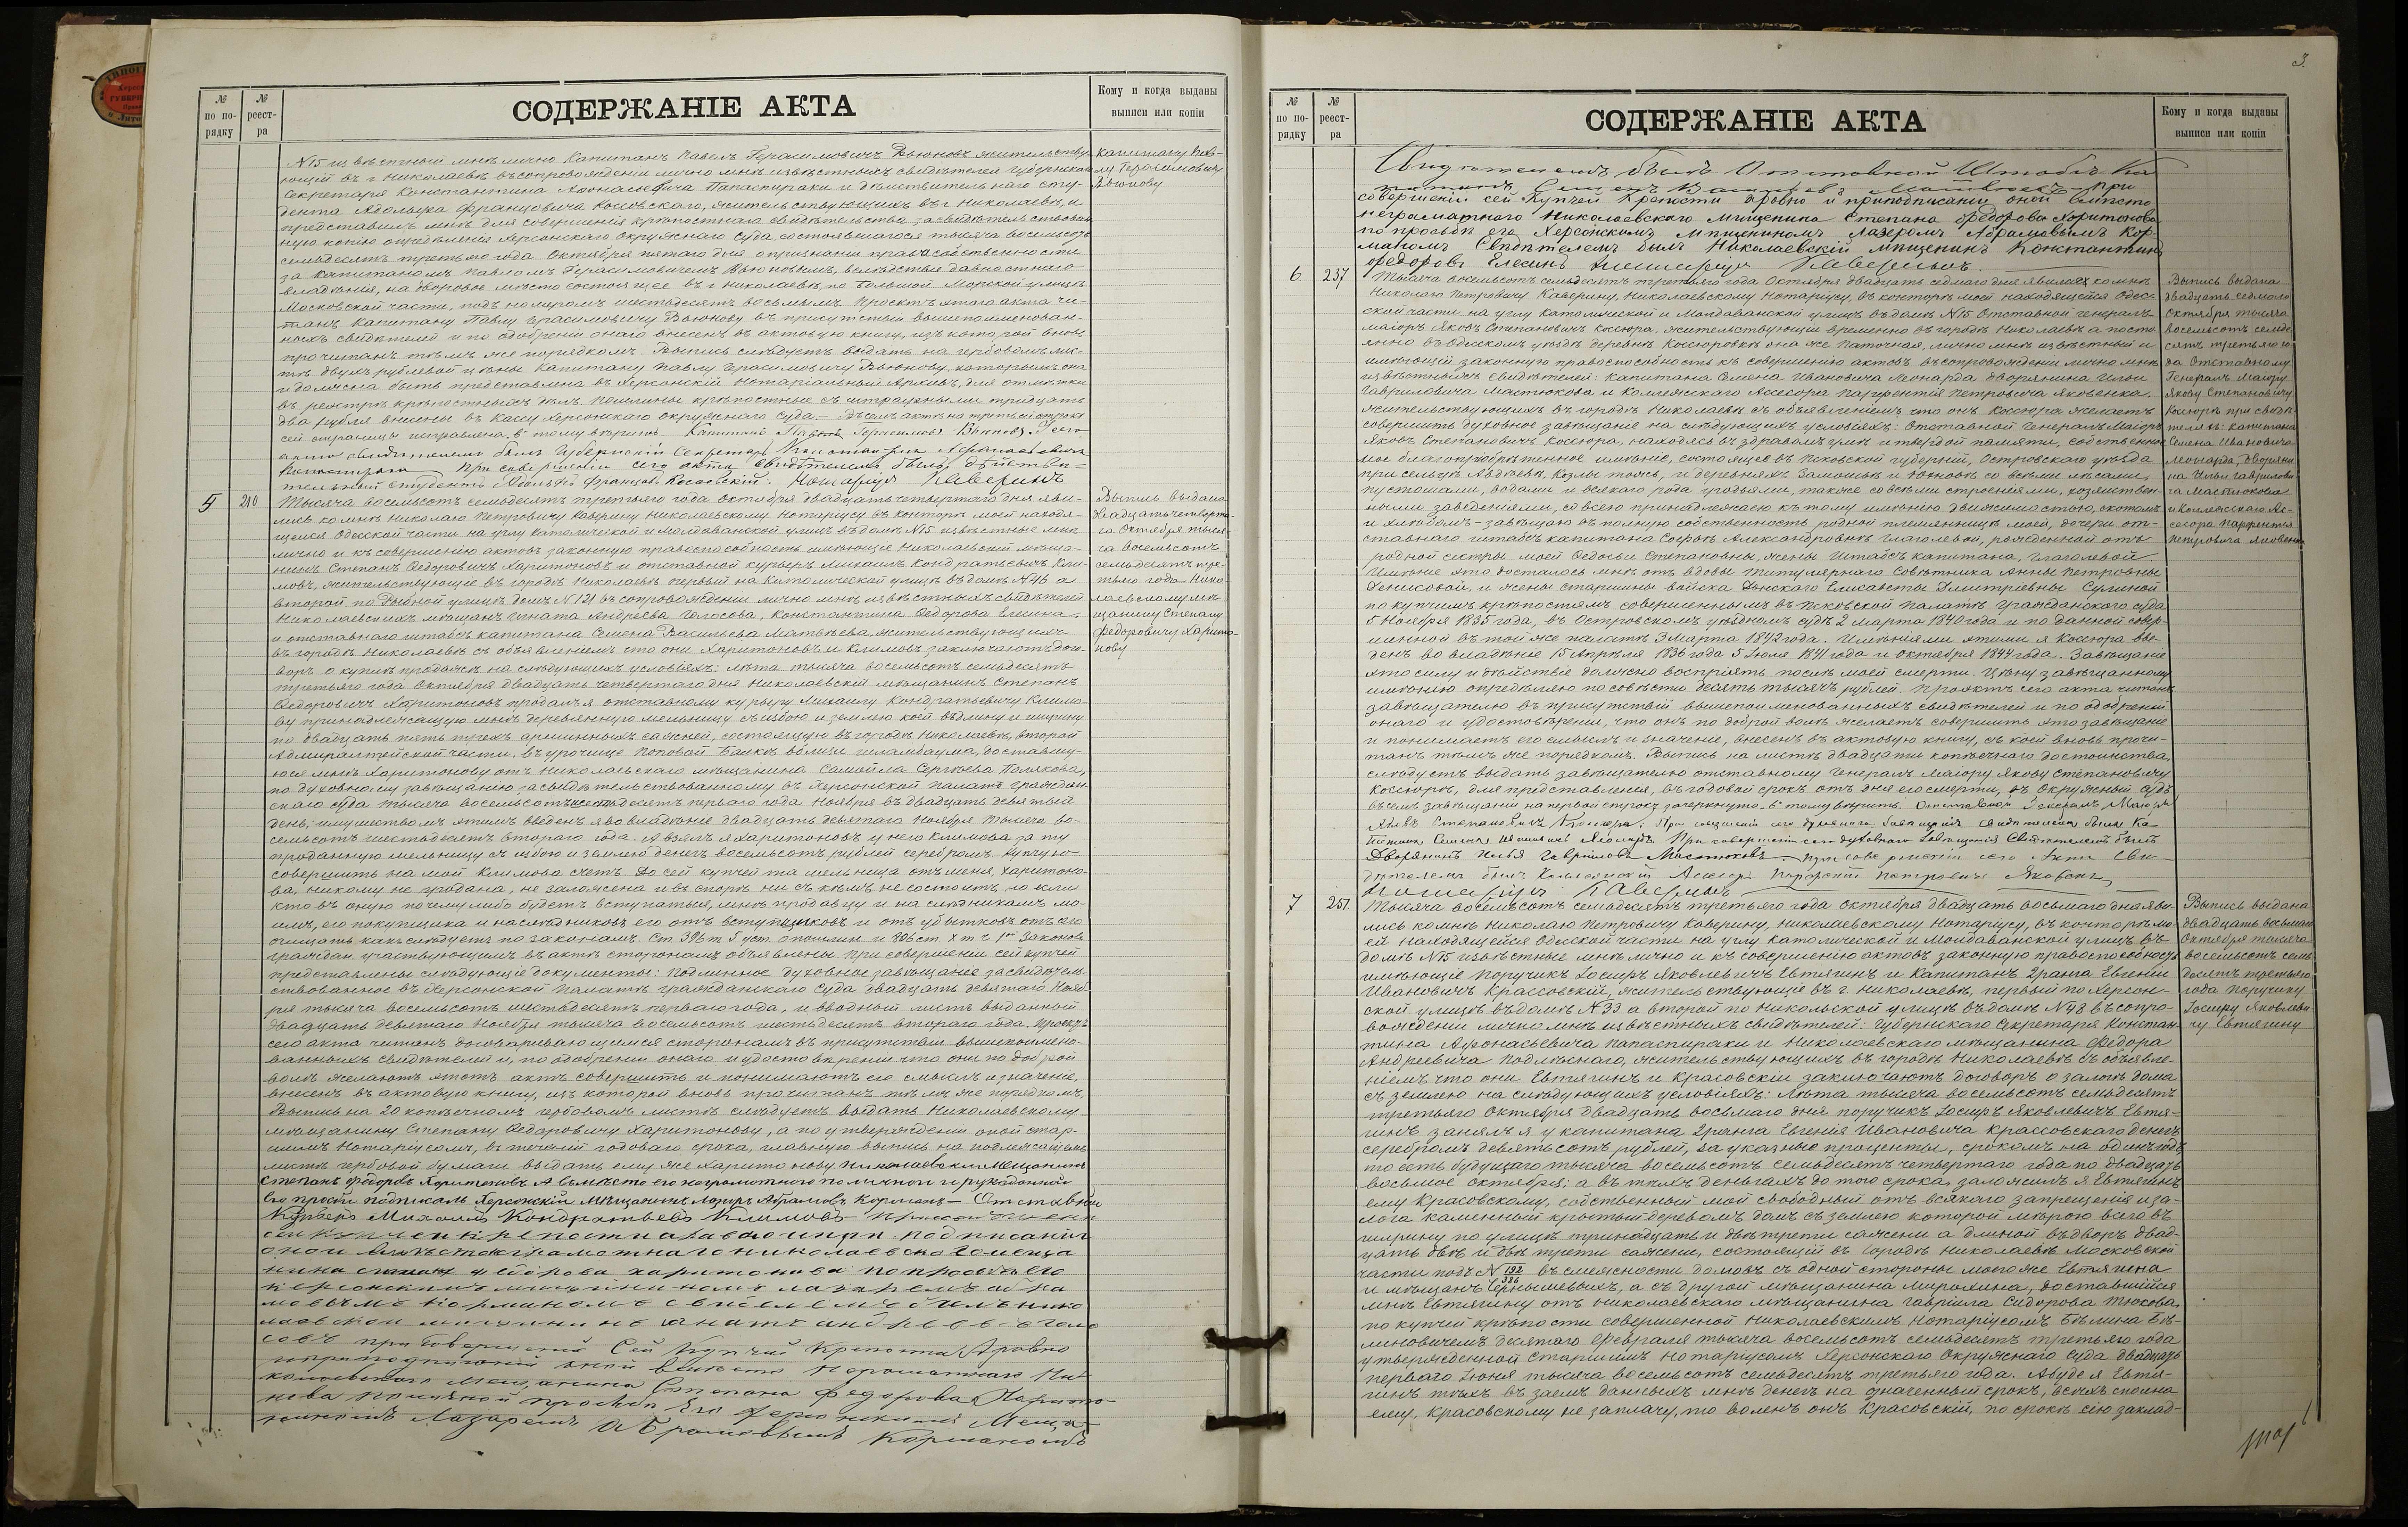 № по по- рядку
№ реест- ра
СОДЕРЖАНІЕ АКТА
Кому и когда выданы выписи или копіи
N15 извѣстный мнѣ лично Капитанъ Павелъ Герасимовичъ Вьюновъ жительству-
ющій въ г. Николаевѣ въ сопровожденіи лично мнѣ извѣстныхъ свидѣтелей Губернскаго
Секретаря Константина Афонасьевича Папаспираки и дѣйствительнаго сту-
дента Адольфа Францовича Коссовскаго, жительствующихъ въ г. Николаевѣ, и
представилъ мнѣ для совершенія крѣпостнаго свидѣтельства засвидѣтельствован-
ную копію опредѣленія Херсонскаго Окружнаго Суда, состоявшагося тысяча восемьсотъ
семьдесятъ третьяго года Октября пятаго дня о признаніи права собственности
за Капитаномъ Павломъ Герасимовичемъ Вьюновымъ, вслѣдствіе давностнаго
владѣнія, на дворовое мѣсто состоящее въ г. Николаевѣ, по Большой Морской улицѣ
Московской части, подъ номеромъ шестьдесятъ восьмымъ. Проектъ этого акта чи-
танъ Капитану Павлу Герасимовичу Вьюнову въ присутствіи вышепоименован-
ныхъ свидѣтелей и по одобреніи онаго внесенъ въ актовую книгу, изъ которой вновь
прочитанъ тѣмъ же порядкомъ. Выпись слѣдуетъ выдать на гербовомъ лис-
тѣ двухъ рублевой цѣны Капитану Павлу Герасимовичу Вьюнову, которымъ она
и должна быть представлена въ Херсонскій Нотаріальный Архивъ, для отмѣтки
въ реестрѣ крѣпостныхъ дѣлъ. Пошлины крѣпостныя съ штрафными тридцать
два рубля внесены въ Кассу Херсонскаго Окружнаго Суда.
сей страницы исправлено. Тому вѣрить. Капитанъ Павелъ Герасимовъ Вьюновъ. У сего
акта свидѣтелемъ былъ Губернскій Секретарь Константинъ Афанасьевичъ
Папаспираки При совершеніи сего акта свидѣтелемъ былъ дѣйстви-
тельный Студентъ Адольфъ Францовъ Коссовскій. Нотаріусъ Каверинъ
Капитану Пав-
лу Герасимовичу
Вьюнову
5 210
Тысяча восемьсотъ семьдесятъ третьяго года Октября двадцать четвертаго дня яви-
лись ко мнѣ Николаю Петровичу Каверину Николаевскому Нотаріусу въ конторѣ моей находя-
щейся Одесской части на углу Католической и Молдаванской улицъ въ домѣ N15 извѣстные мнѣ
лично и къ совершенію актовъ законную правоспособность имѣющіе Николаевскій мѣща-
нинъ Степанъ Ѳедоровичъ Харитоновъ и отставной курьеръ Михаилъ Кондратьевичъ Кли-
мовъ, жительствующіе въ городѣ Николаевѣ первый на Католической улицѣ въ домѣ N46 а
второй по Рыбной улицѣ домъ N121 въ сопровожденіи лично мнѣ извѣстныхъ свидѣтелей
Николаевскихъ мѣщанъ Игната Андреева Голосова, Константина Ѳедорова Елесина
и отставнаго штабсъ капитана Семена Васильева Матвѣева, жительствующихъ
въ городѣ Николаевѣ съ объявленіемъ что они Харитоновъ и Климовъ заключаютъ дого-
воръ о куплѣ продажѣ на слѣдующихъ условіяхъ: лѣта тысяча восемьсотъ семьдесятъ
третьяго года Октября двадцать четвертаго дня Николаевскій мѣщанинъ Степанъ
Ѳедоровичъ Харитоновъ продалъ я отставному курьеру Михаилу Кондратьевичу Климо-
ву принадлежащую мнѣ деревянную мельницу съ избою и землею коей въ длину и ширину
по двадцать пять трехъ аршинныхъ саженей, состоящую въ городѣ Николаевѣ, второй
Адмиралтейской части, въ урочищѣ Поповой Балкѣ вблизи шлагбаума, доставшу-
юся мнѣ Харитонову отъ Николаевскаго мѣщанина Самойла Сергѣева Полякова,
по духовному завѣщанію засвидѣтельствованному въ Херсонской Палатѣ Граждан-
скаго суда тысяча восемьсотъ шестьдесятъ перваго года Ноября въ двадцать девятый
день; имуществомъ этимъ введенъ я во владѣніе двадцать девятаго Ноября тысяча во-
семьсотъ шестьдесятъ втораго года. А взялъ я Харитоновъ у него Климова за ту
проданную мельницу съ избою и землею денегъ восемьсотъ рублей серебромъ. Купчую
совершить на мой Климова счетъ. До сей купчей та мельница отъ меня, Харитоно-
ва, никому не продана, не заложена и въ спорѣ ни съ кѣмъ не состоитъ, то если
кто въ оную почему либо будетъ вступаться, мнѣ продавцу и наслѣдникамъ мо-
имъ, его покупщика и наслѣдниковъ его отъ вступщиковъ и отъ убытковъ отъ его
очищать какъ слѣдуетъ по законамъ. Ст 396 т 5 уст. о пошлин. и ст. X т ч 1й Законовъ
граждан. участвующимъ въ актѣ сторонамъ объявлены. При совершеніи сей купчей
представлены слѣдующіе документы: Подлинное духовное завѣщаніе засвидѣтель-
ствованное въ Херсонской Палатѣ гражданскаго Суда двадцать девятаго Нояб-
ря тысяча восемьсотъ шестьдесятъ перваго года, и вводный листъ выданный
двадцать девятаго Ноября тысяча восемьсотъ шестьдесятъ втораго года. Проектъ
сего акта читанъ договаривающимся сторонамъ въ присутствіи вышепоимено-
ванныхъ свидѣтелей и, по одобреніи онаго и удостовѣреніи что они по доброй
волѣ желаютъ этотъ актъ совершить и понимаютъ его смыслъ и значеніе,
внесенъ въ актовую книгу, изъ которой вновь прочитанъ тѣмъ же порядкомъ.
Выпись на 20 копѣечномъ гербовомъ листѣ слѣдуетъ выдать Николаевскому
мѣщанину Степану Ѳедоровичу Харитонову, а по утвержденіи оной стар-
шимъ Нотаріусомъ, въ теченіи годоваго срока, главную выпись на подлежащемъ
листѣ гербовой бумаги выдать ему же Харитонову. Николаевский Мещанинъ
Степанъ Федоровъ Харитоновъ А вмѣсто его неграмотнаго по личной и рукоданной
его просьбѣ подписалъ Херсонскій Мѣщанинъ Лазарь Абрамовъ Корманъ — Отставной
Курьеръ Михаилъ Кондратьевъ Климовъ
оной вмѣсто неграмотнаго николаевскаго меща
нина степана федорова харитонова по просьбѣ его
херсонскимъ мещаниномъ лазаремъ абра
мовымъ корманомъ свидетелемъ былъ нико
лаевской мещанинъ игнатъ андреевъ голо
совъ при Совершеній Сей Купчей Крепости Аровно
иприподписаній оной вместо Неграмотнаго Ни-
колаевскаго Мещанина Степана Федорова Харито-
нова поличной просьбѣ Его Херсонскимъ Меща-
ниномъ Лазаремъ Абрамовымъ Корманомъ
Выпись выдана
двадцать четверта-
го Октября тыся-
ча восемьсотъ
семьдесятъ тре-
тьяго года Нико-
лаевскому мѣ-
щанину Степану
Федоровичу Харито-
нову
3.
№ по по- рядку
№ реест- ра
СОДЕРЖАНІЕ АКТА
Кому и когда выданы выписи или копіи
Свидетелемъ былъ Отставной Штабсъ Ка
питанъ Семенъ Васильевъ Матвѣевъ При
совершеніи сей Купчей Крепости Аровно и приподписаніи оной вмѣсто
неграматнаго Николаевскаго Мищенина Степана Федорова Харитонова
по просьбѣ его Херсонскимъ Мищениномъ Лазеромъ Абрамовымъ Кор-
маномъ Свидѣтелемъ былъ Николаевскій мищенинъ Константинъ
Федоровъ Елесинъ Нотаріусъ Каверинъ.
6. 237
Тысяча восемьсотъ семьдесятъ третьяго года Октября двадцать седьмаго дня явился ко мнѣ
Николаю Петровичу Каверину, Николаевскому Нотаріусу, въ конторѣ моей находящейся Одес-
ской части на углу Католической и Молдаванской улицъ въ домѣ N15 Отставной генералъ
маіоръ Яковъ Степановичъ Коссюра, жительствующій временно въ городѣ Николаевѣ а посто-
янно въ Одесскомъ уѣздѣ деревнѣ Коссюровкѣ она же Паточная, лично мнѣ извѣстный и
имѣющій законную правоспособность къ совершенію актовъ въ сопровожденіи лично мнѣ
извѣстныхъ свидѣтелей: Капитана Семена Ивановича Леонарда дворянина Ильи
Гавриловича Мастюкова и Коллежскаго Ассесора Парфентія Петровича Яковенка.
жительствующихъ въ городѣ Николаевѣ съ объявленіемъ что онъ Коссюра желаетъ
совершить духовное завѣщаніе на слѣдующихъ условіяхъ: Отставной Генералъ Маіоръ
Яковъ Степановичъ Коссюра, находясь въ здравомъ умѣ и твердой памяти, собственное
мое благопріобрѣтенное имѣніе, состоящее въ Псковской губерніи, Островскаго уѣзда
при сельцѣ Авдѣевѣ, Козлы тожъ, и деревняхъ Замошьѣ и со всѣми лѣсами,
пустошами, водами и всякаго рода угодьями, также со всѣми строеніями, хозяйствен-
ными заведеніями, со всею принадлежащею къ тому имѣнію движимостью, скотомъ
и хлѣбомъ - завѣщаю въ полную собственность родной племянницѣ моей, дочери от-
ставнаго штабсъ капитана Софьѣ Александровнѣ Глаголевой, рожденной отъ
родной сестры моей Ѳедосьи Степановны, жены Штабсъ капитана, Глаголевой
Имѣніе это досталось мнѣ отъ вдовы Титулярнаго Совѣтника Анны Петровны
Денисовой и жены старшины войска Донскаго Елисаветы Дмитріевны Сулиной
по купчимъ крѣпостямъ совершеннымъ въ Псковской Палатѣ гражданскаго суда
5 Ноября 1835 года, въ Островскомъ уѣздномъ судѣ 2 марта 1840 года и по данной совер-
шенной въ той же палатѣ 3 Марта 1842 года. Имѣніями этими я Коссюра вве-
денъ во владѣніе 15 Апрѣля 1836 года 5 Іюля 1841 года и Октября 1844 года. Завѣщаніе
это силу и дѣйствіе должно воспріять послѣ моей смерти. Цѣну завѣщанному
имѣнію опредѣляю по совѣсти десять тысячъ рублей. Проэктъ сего акта читанъ
завѣщателю въ присутствіи вышепоименованныхъ свидѣтелей и по одобреніи
онаго и удостовѣреніи, что онъ по доброй волѣ желаетъ совершить это завѣщаніе
и понимаетъ его смыслъ и значеніе, внесенъ въ актовую книгу, съ коей вновь прочи-
танъ тѣмъ же порядкомъ. Выпись на листѣ двадцати копѣечнаго достоинства,
слѣдуетъ выдать завѣщателю отставному Генералъ Маіору Якову Степановичу
Коссюрѣ, для представленія, въ годовой срокъ отъ дня его смерти, въ Окружный Судъ
въ семъ завѣщаніи на первой строкѣ зачеркнуто. Тому вѣрить. Отставной Генералъ Маіоръ
Яковъ Степановъ Коссюра. При совершеніи сего духовнаго Завѣщанія свидѣтелемъ былъ Ка-
питанъ Семенъ Ивановъ Леонардъ При совершеніи сего духовнаго Завещанія Свидѣтелемъ былъ
Дворянинъ Илья Гавриловъ Мастюковъ При совершеніи сего Акта Сви-
дѣтелемъ былъ Коллежскій Асесоръ Парфентій Петровичъ Яковенко
Нотаріусъ Каверинъ
Выпись выдана
двадцать седьмаго
Октября тысяча
восемьсотъ семьде-
сятъ третьяго го-
да Отставному
Генералъ Маіору
Якову Степановичу
Коссюрѣ при свидѣ-
теляхъ: капитана
Семена Ивановича
Леонарда, Дворяни-
на Ильи Гаврилови-
ча Мастюкова
и Коллежскаго Ас-
сесора Парфентія
Петровича Яковенка
7 251.
Тысяча восемьсотъ семьдесятъ третьяго года Октября двадцать восьмаго дня яви-
лись ко мнѣ Николаю Петровичу Каверину, Николаевскому Нотаріусу, въ конторѣ мо-
ей находящейся Одесской части на углу Католической и Молдаванской улицъ въ
домѣ N15 извѣстные мнѣ лично и къ совершенію актовъ законную правоспособность
имѣющіе Поручикъ Іосифъ Яковлевичъ Евтягинъ и Капитанъ 2 ранга Евгеній
Ивановичъ Крассовскій, жительствующіе въ г. Николаевѣ, первый по Херсон-
ской улицѣ въ домѣ N33 а второй по Никольской улицѣ въ домѣ N48 въ сопро-
вожденіи лично мнѣ извѣстныхъ свидѣтелей: Губернскаго Секретаря Констан-
тина Афонасьевича Папаспираки и Николаевскаго мѣщанина Федора
Андреевича Подлѣснаго, жительствующихъ въ городѣ Николаевѣ съ объявле-
ніемъ что они Евтягинъ и Красовскій заключаютъ договоръ о залогѣ дома
съ землею на слѣдующихъ условіяхъ: Лѣта тысяча восемьсотъ семьдесятъ
третьяго Октября двадцать восьмаго дня поручикъ Іосифъ Яковлевичъ Евтя-
гинъ занялъ я у капитана 2 ранга Евгенія Ивановича Крассовскаго денегъ
серебромъ девятьсотъ рублей, за указные проценты, срокомъ на одинъ годъ
то есть будущаго тысяча восемьсотъ семьдесятъ четвертаго года по двадцать
восьмое октября; а въ тѣхъ деньгахъ до того срока, заложилъ я Евтягинъ
ему Красовскому, собственный мой свободный отъ всякаго запрещенія и за-
лога каменный крытый деревомъ домъ съ землею которой мѣрою всего въ
ширину по улицѣ тринадцать и двѣ трети сажени а длиной въ дворъ двад-
цать двѣ и двѣ трети сажени, состоящій въ Городѣ Николаевѣ Московской
части подъ N 192/386 въ смежности домовъ съ одной стороны моего же Евтягина
и мѣщанъ Чернышевыхъ, а съ другой мѣщанина Мирохина, доставшійся
мнѣ Евтягину отъ Николаевскаго мѣщанина Гавріила Сидорова Тюкова
по купчей крѣпости совершенной Николаевскимъ Нотаріусомъ
десятаго Февраля тысяча восемьсотъ семьдесятъ третьяго года
утвержденной Старшимъ Нотаріусомъ Херсонскаго Окружнаго Суда двадцать
перваго Іюня тысяча восемьсотъ семьдесятъ третьяго года. А буде я Евтя-
гинъ тѣхъ въ заемъ данныхъ мнѣ денегъ на означенный срокъ, всѣхъ сполна
ему, Красовскому не заплачу, то воленъ онъ Красовскій, по срокѣ сію заклад-
Выпись выдана
двадцать восьмаго
Октября тысяча
восемьсотъ семь-
десятъ третьяго
года Поручику
Іосифу Яковлеви-
чу Евтягину